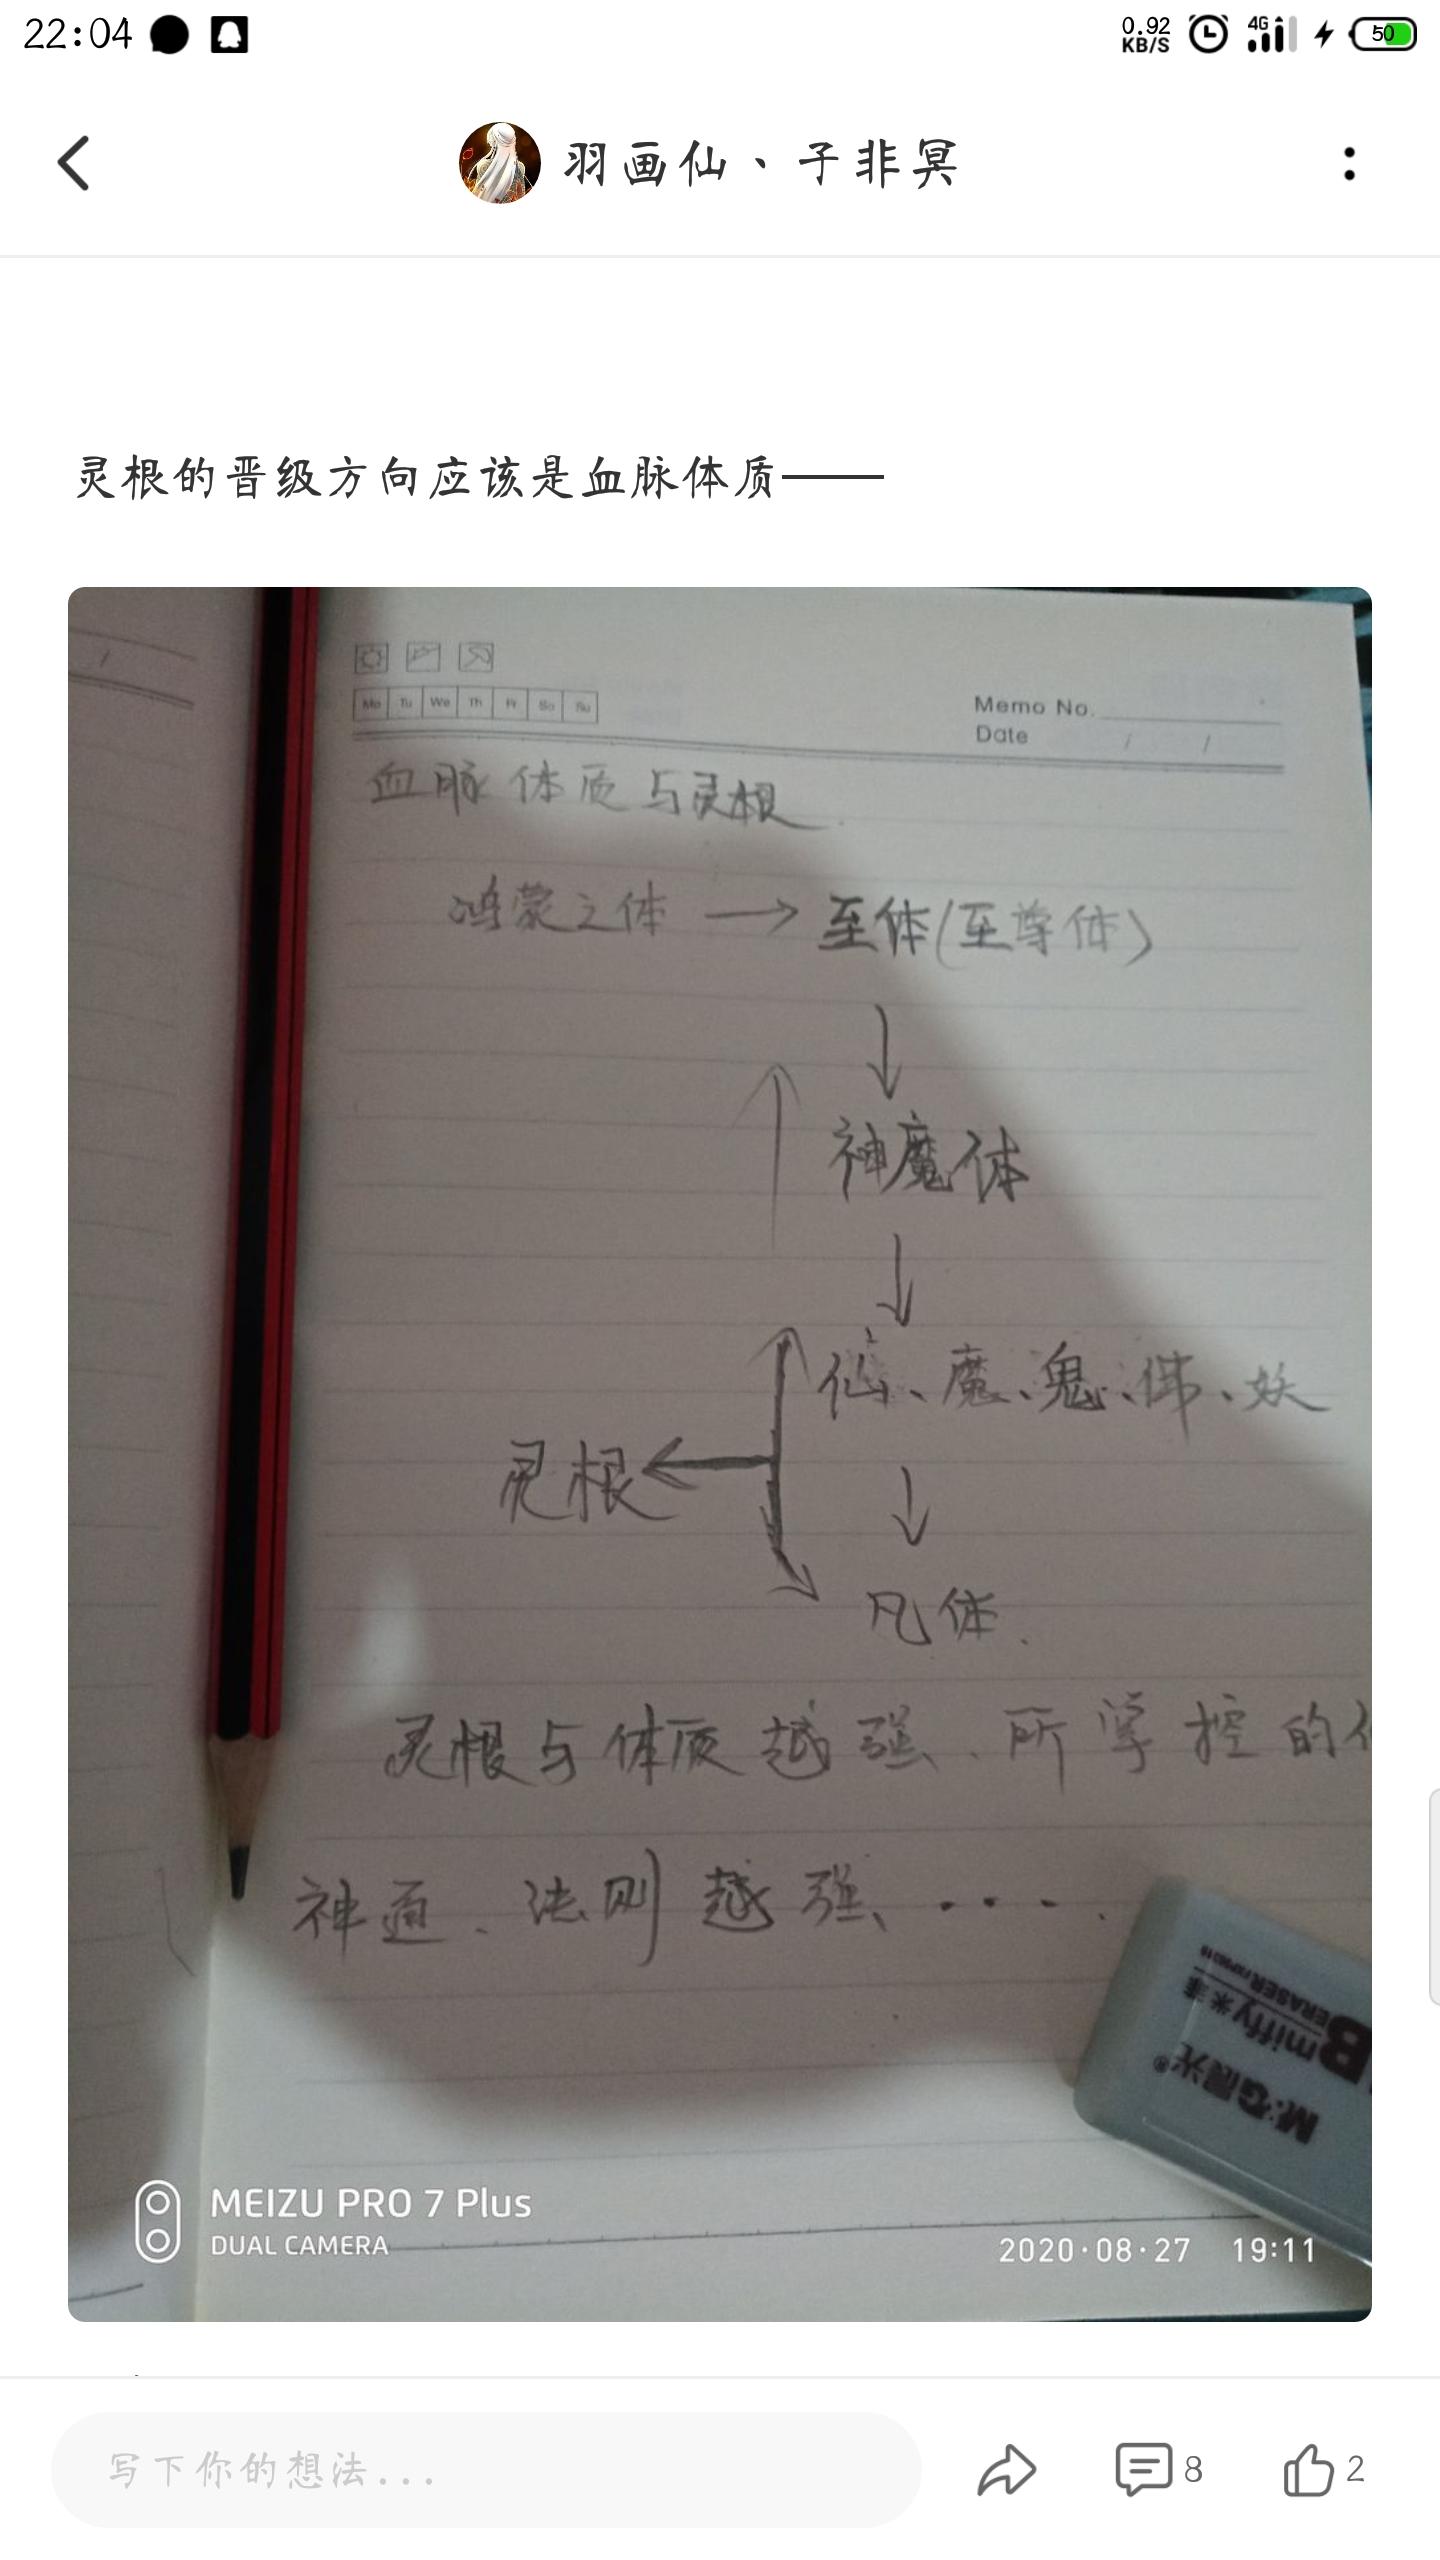 22:04
0.92
KB/S
4G
50
羽画仙、子非冥
灵根的晋级方向应该是血脉体质——
Mo Tu We Th Fr Sa Su
Memo No.
Date / /
血脉体质与灵根
鸿蒙之体 → 至体(至尊体)
↓
↑
神魔体
↓
仙、魔、鬼、佛、妖
灵根 ←
↓
凡体.
灵根与体质越强、所掌控的
神通、法则越强、....
M&G晨光®
miffy米菲
ERASER
MEIZU PRO 7 Plus
DUAL CAMERA
2020·08·27 19:11
写下你的想法...
8
2